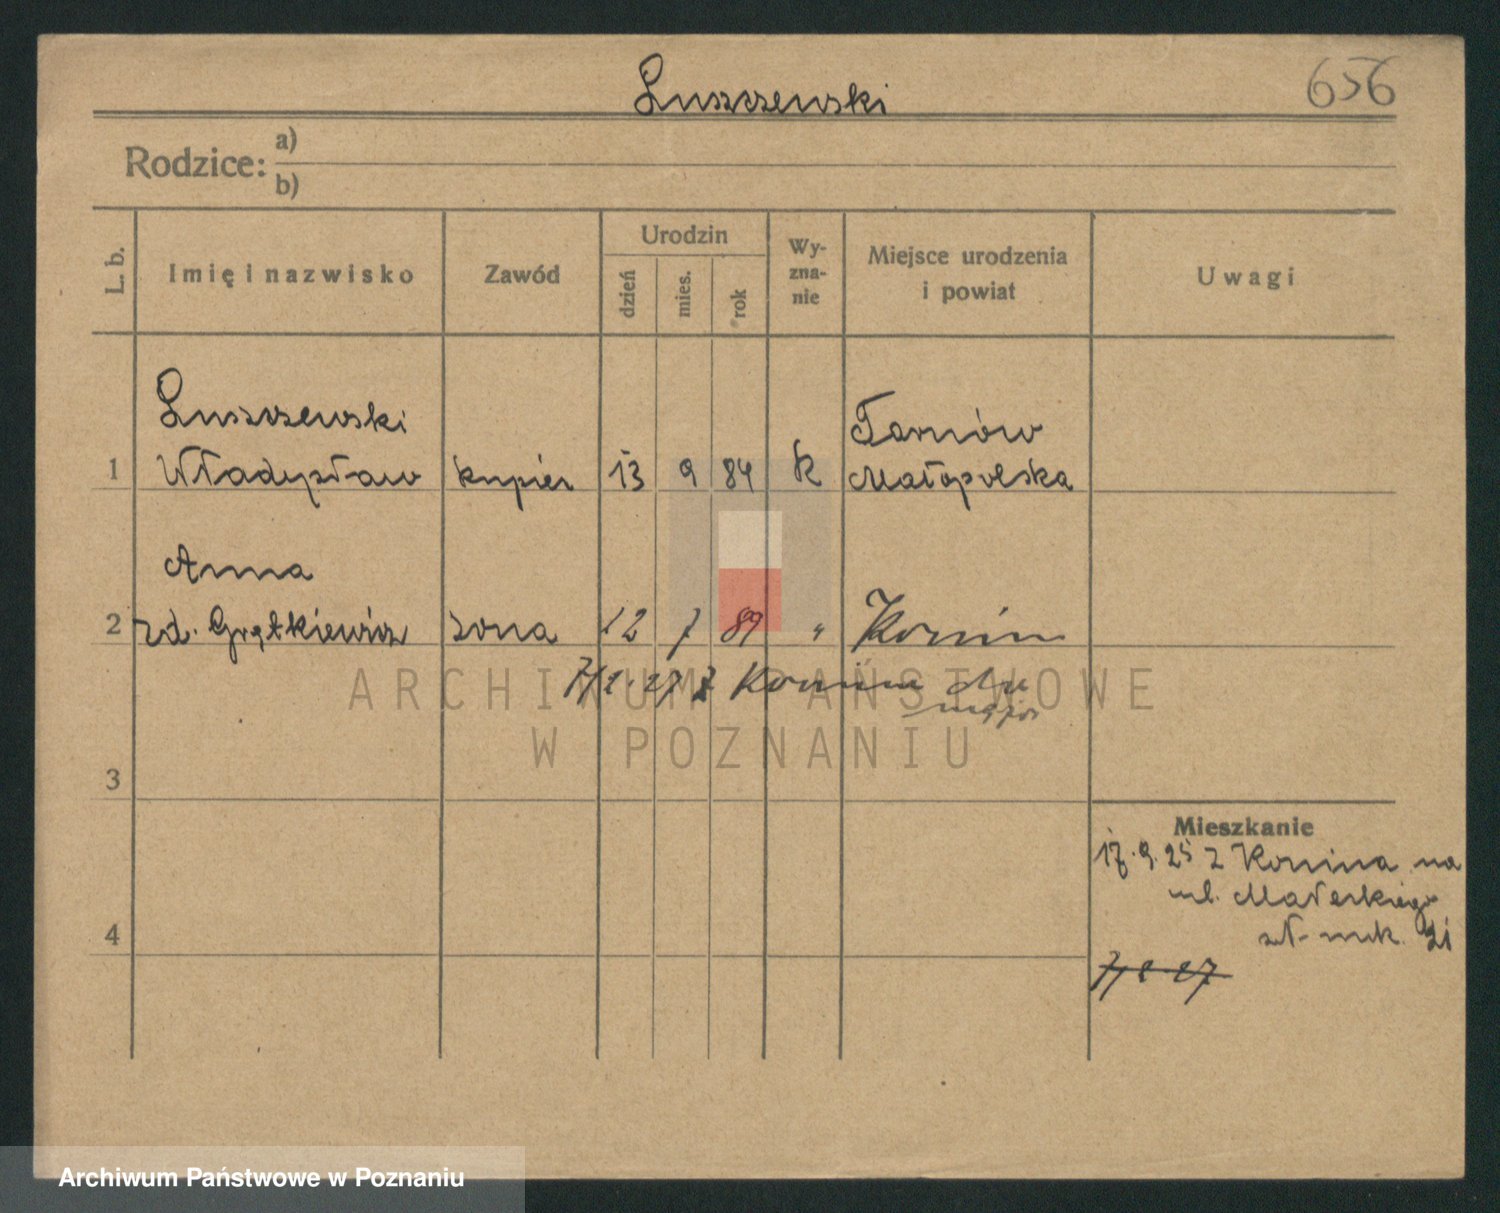 Łuszczewski
656
Rodzice:
a)
b)
L. b.
Imię i nazwisko
Zawód
Urodzin
dzień
mies.
rok
Wy-
zna-
nie
Miejsce urodzenia
i powiat
Uwagi
Łuszczewski
Tarnów
1 Władysław kupiec 13 9 84 k Małopolska
Anna
2 zd. żona 12 7 89 " Konin
27 z Konin
ARCHIWUM PAŃSTWOWE
W POZNANIU
3
Mieszkanie
17.9.25 z Konina na
ul.
4
Archiwum Państwowe w Poznaniu